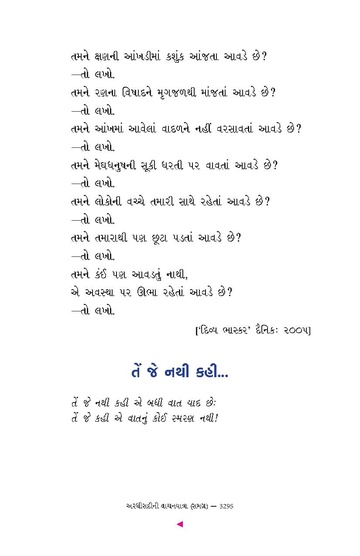 તમને ક્ષણની આંખડીમાં કશુંક આંજતા આવડે છે?
—તો લખો.
તમને રણના વિષાદને મૃગજળથી માંજતાં આવડે છે?
—તો લખો.
તમને આંખમાં આવેલાં વાદળને નહીં વરસાવતાં આવડે છે?
—તો લખો.
તમને મેઘધનુષની સૂકી ધરતી પર વાવતાં આવડે છે?
—તો લખો.
તમને લોકોની વચ્ચે તમારી સાથે રહેતાં આવડે છે?
—તો લખો.
તમને તમારાથી પણ છૂટા પડતાં આવડે છે?
—તો લખો.
તમને કંઈ પણ આવડતું નાથી,
એ અવસ્થા પર ઊભા રહેતાં આવડે છે?
—તો લખો.
['દિવ્ય ભાસ્કર' દૈનિક: ૨૦૦૫]
તેં જે નથી કહી...
તેં જે નથી કહી એ બધી વાત યાદ છે:
તેં જે કહી એ વાતનું કોઈ સ્મરણ નથી!
અરધીસદીની વાચનયાત્રા (સમગ્ર) — 3295